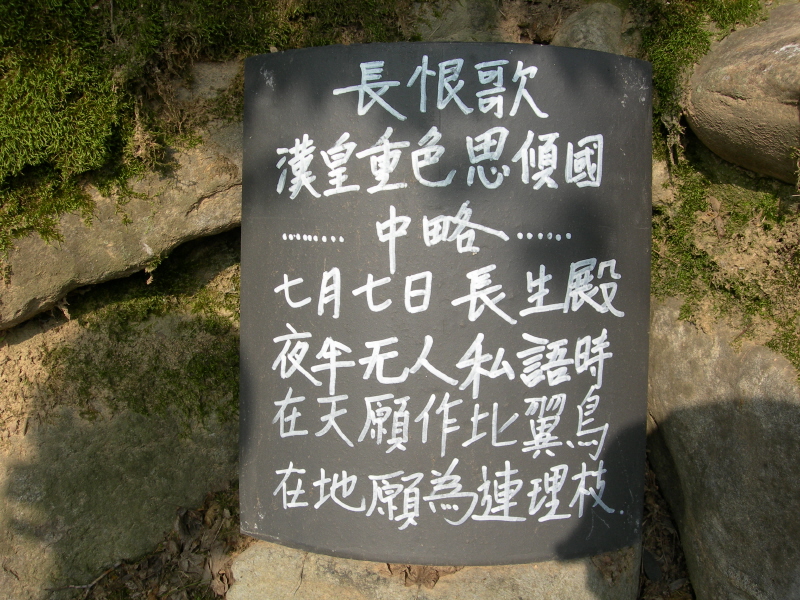 長恨歌
漢皇重色思傾國
........ 中略 ......
七月七日 長生殿
夜半无人私語時
在天願作比翼鳥
在地願為連理枝.